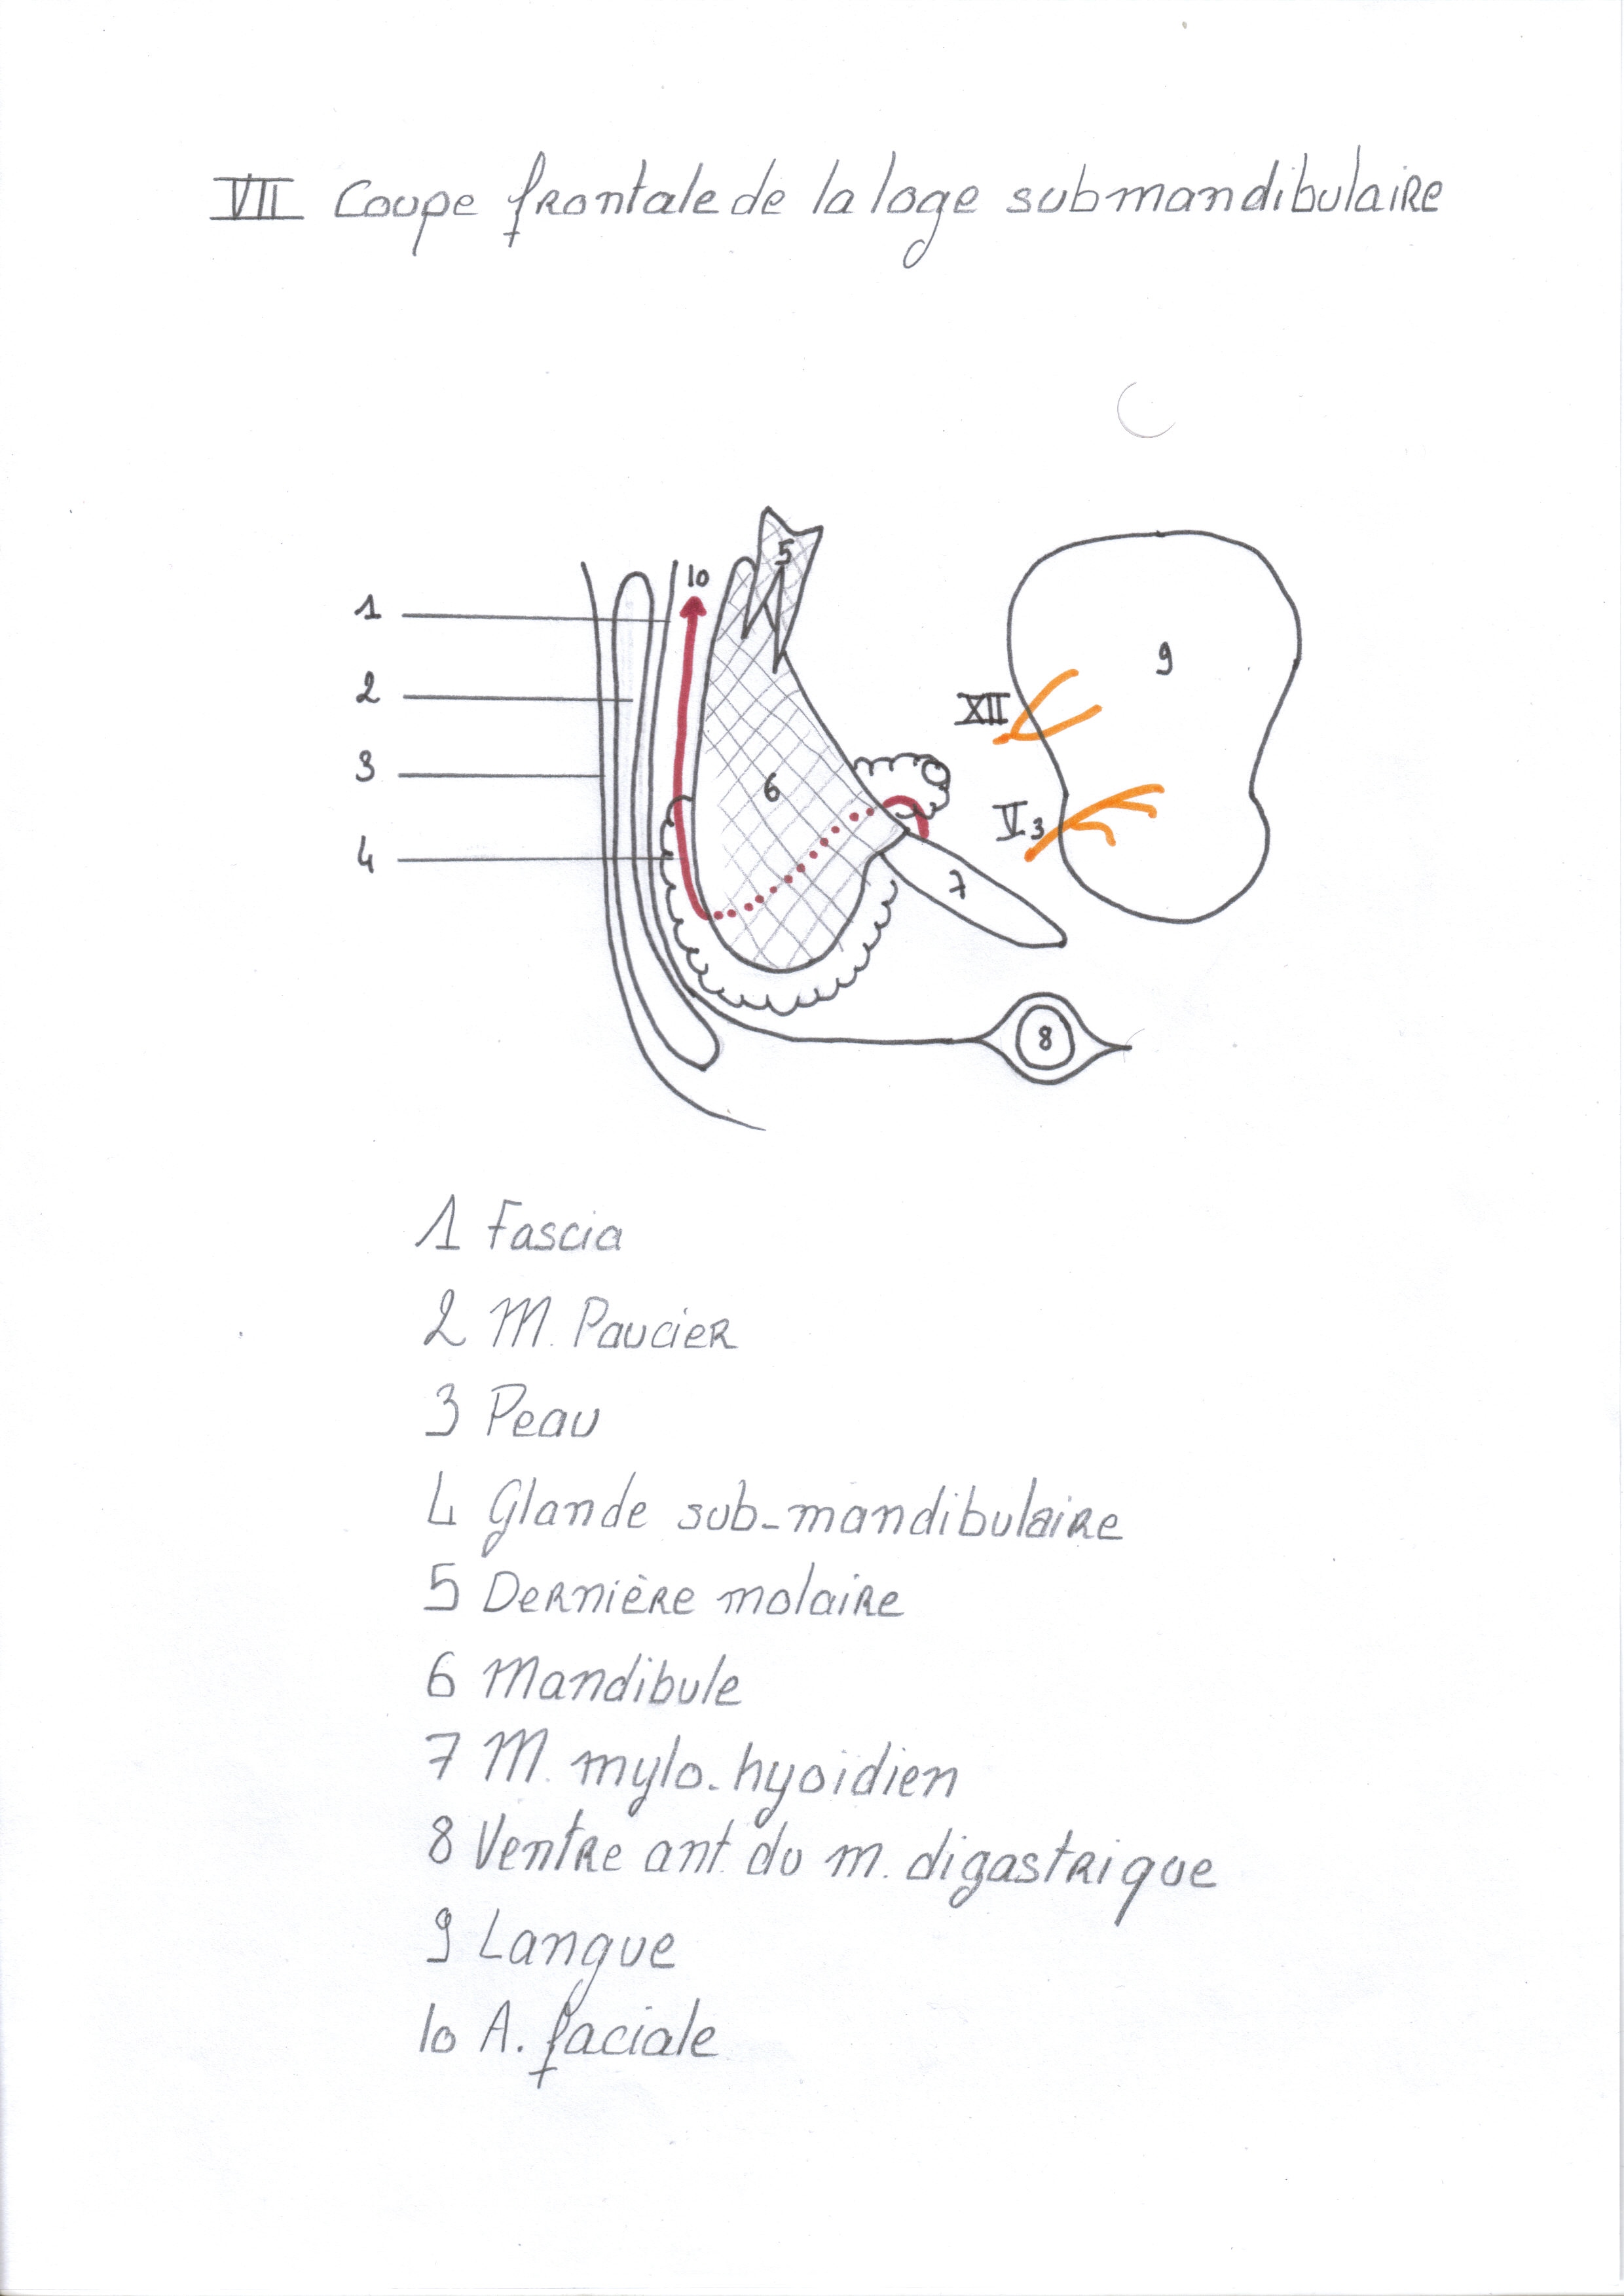 VII Coupe frontale de la loge submandibulaire
10
5
1
2
9
XII
3
6
V3
4
7
8
1 Fascia
2 M. Paucier
3 Peau
4 Glande sub-mandibulaire
5 Dernière molaire
6 Mandibule
7 M. mylo-hyoïdien
8 Ventre ant. du m. digastrique
9 Langue
10 A. faciale